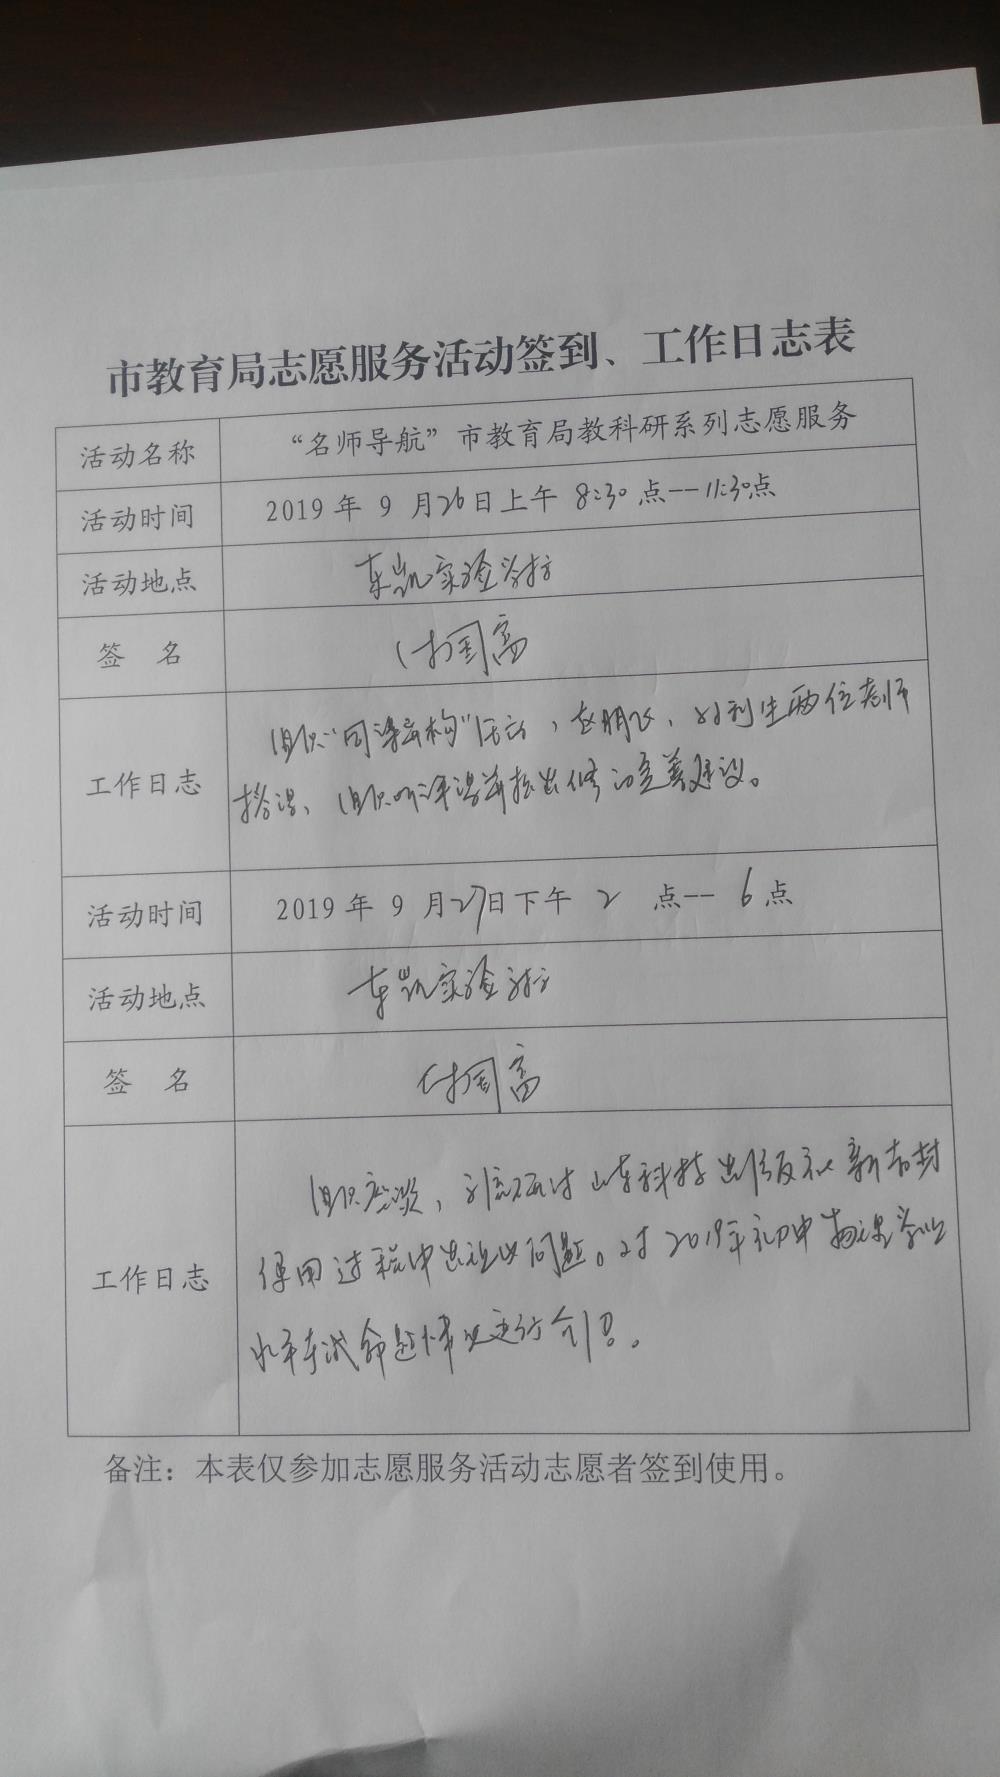 市教育局志愿服务活动签到、工作日志表
活动名称 “名师导航”市教育局教科研系列志愿服务
活动时间 2019年9月26日上午8:30点--11:30点
活动地点 东凯实验学校
签 名 付国富
组织“同课异构”活动,赵鹏飞、刘利生两位老师
工作日志
授课、组织听评课并提出修改完善建议。
活动时间 2019年9月27日下午2点--6点
活动地点 东凯实验学校
签 名 付国富
组织座谈,研讨山东科技出版社新教材
工作日志 使用过程中出现的问题。对2019年初中物理学业
水平考试命题情况进行介绍。
备注:本表仅参加志愿服务活动志愿者签到使用。